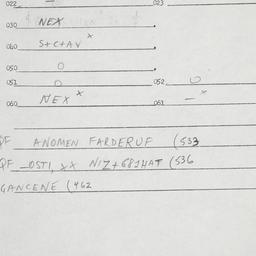 022 — 023
030 NEX
060 S+C+AV x
050 0
051 0 052 0
060 NEX x 061 — x
QF ANOMEN FARDERUF (533
QF -OSTI, xx NIZ+681HAT (536
GANCENE (462